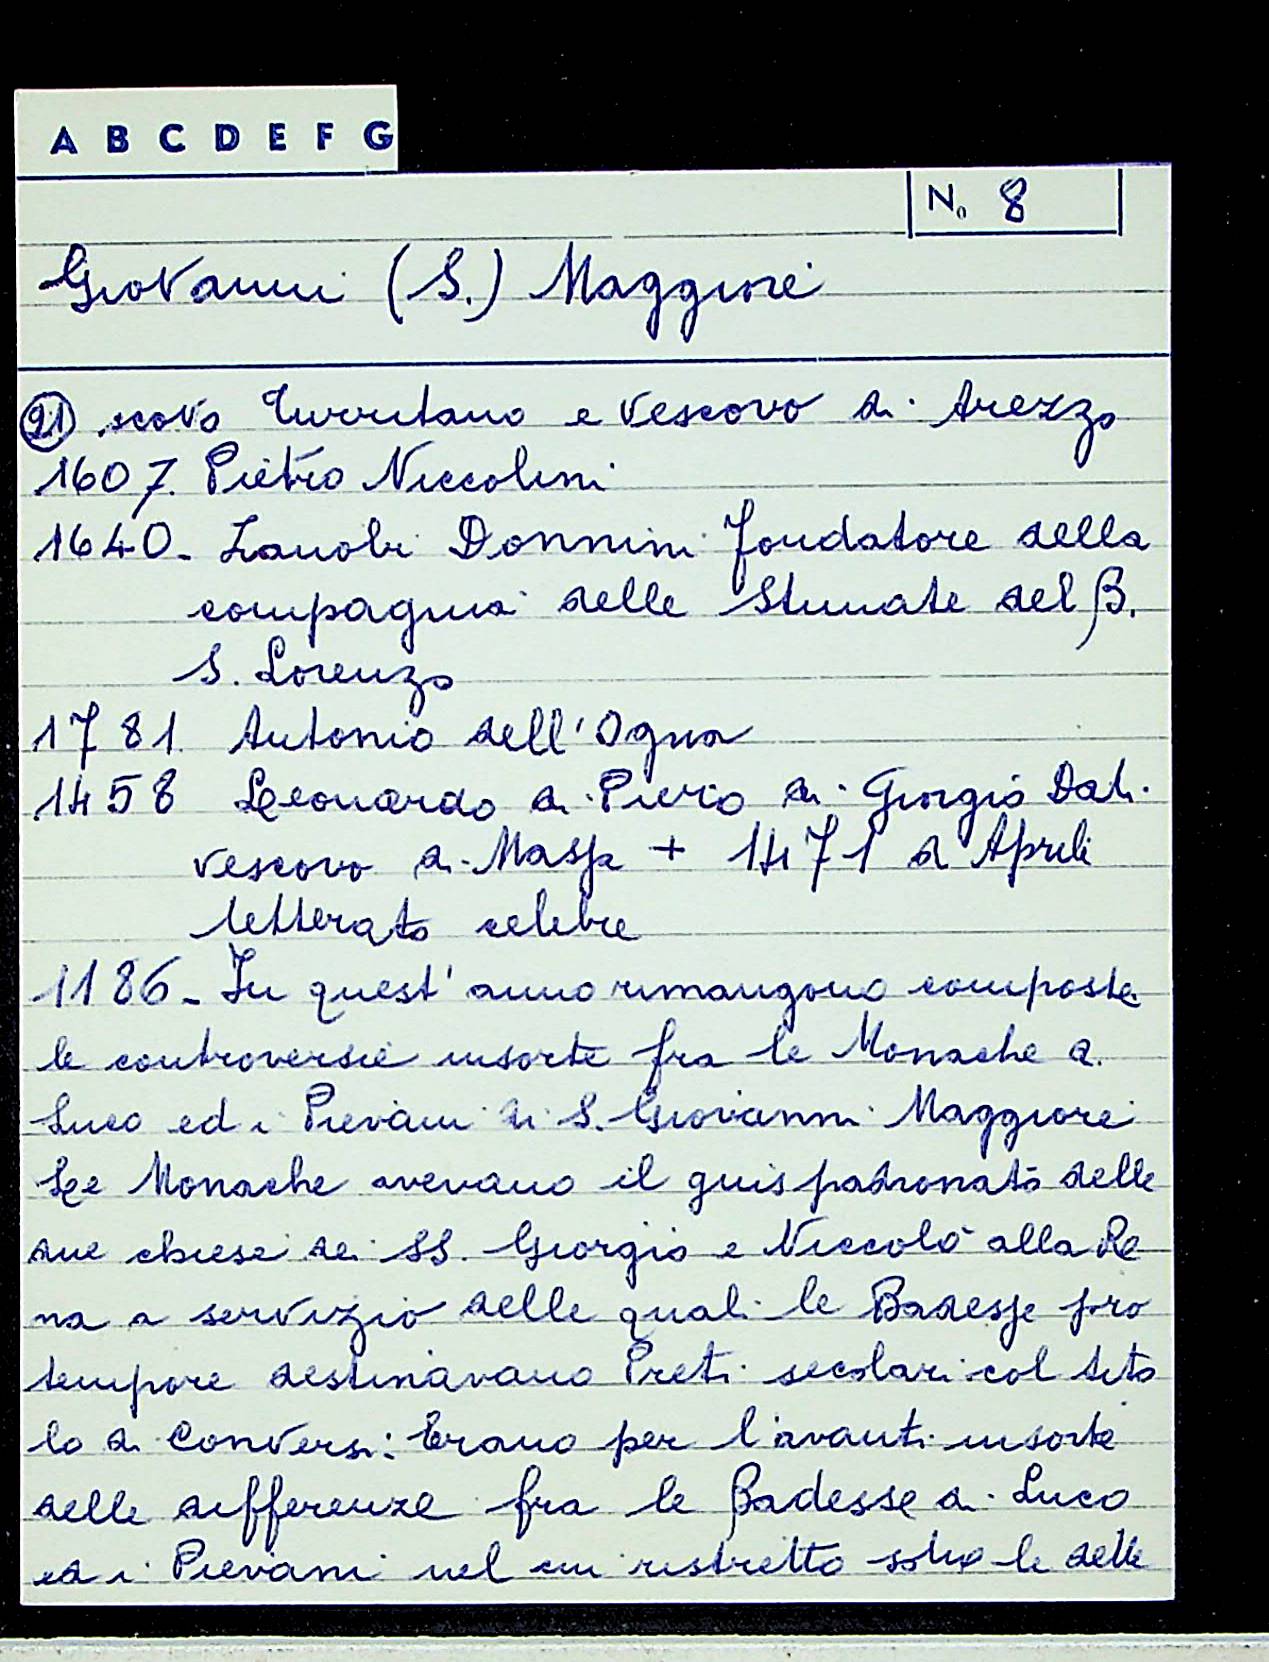 A B C D E F G
No 8
Giovanni (S.) Maggiore
21) scovo Turritano e Vescovo di Arezzo
1607. Pietro Niccolini
1640- Zanobi Donnini fondatore della
compagnia delle Stimate del B.
S. Lorenzo
1781. Antonio dell'Ogna
1458 Leonardo di Piero di Giorgio Dati
vescovo di Massa + 1471 d'Aprile
letterato celebre
1186- In quest'anno rimangono composte
le controversie insorte fra le Monache di
Luco ed i Pievani di S. Giovanni Maggiore
Le Monache avevano il guispadronato delle
due chiese dei SS. Giorgio e Niccolò alla Re
na a servizio delle quali le Badesse pro
tempore destinavano Preti secolari col tito
lo di Conversi: Erano per l'avanti insorte
delle differenze fra le Badesse di Luco
ed i Pievani nel cui ristretto sotto le dette